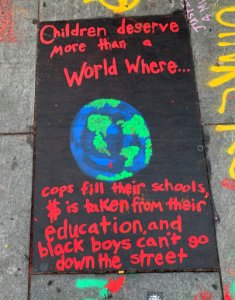 Children deserve
more than a
World Where...
cops fill their schools,
$ is taken from their
education, and
black boys can't go
down the street